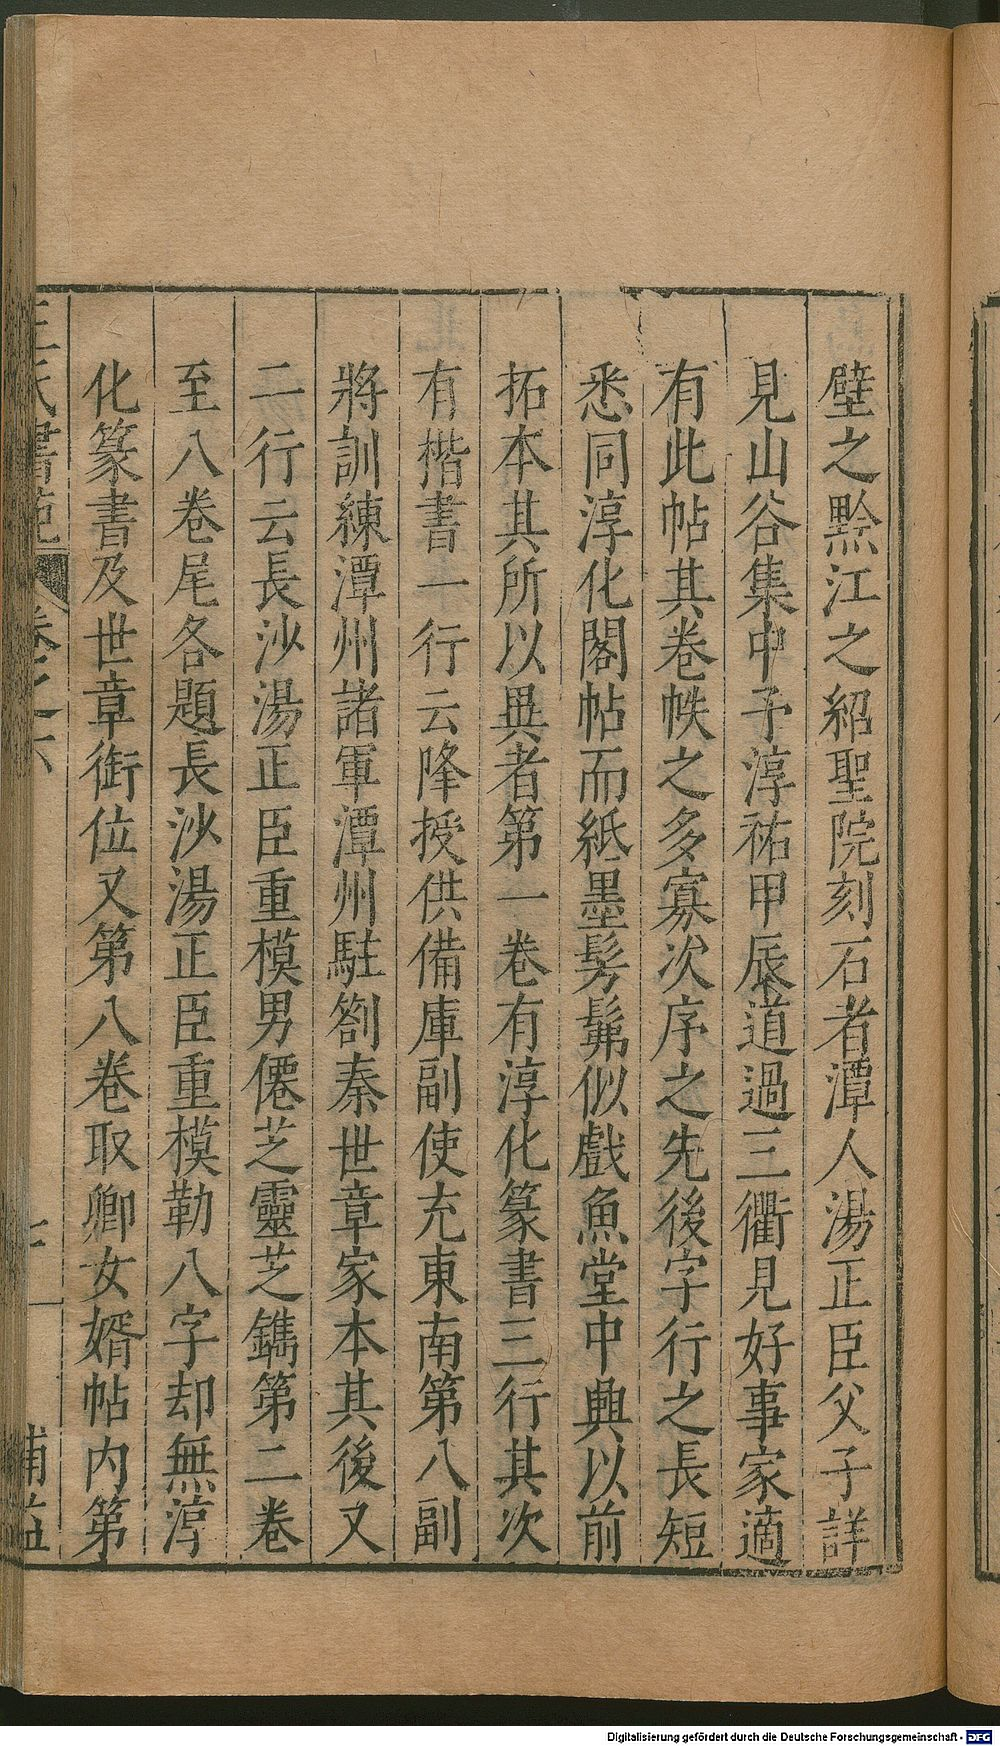 壁之黔江之紹聖院刻石者潭人湯正臣父子詳
見山谷集中予淳祐甲辰道過三衢見好事家適
有此帖其卷帙之多寡次序之先後字行之長短
悉同淳化閣帖而紙墨髣髴似戲魚堂中興以前
拓本其所以異者第一卷有淳化篆書三行其次
有楷書一行云降授供備庫副使充東南第八副
將訓練潭州諸軍潭州駐劄秦世章家本其後又
二行云長沙湯正臣重模男僊芝靈芝鐫第二卷
至八卷尾各題長沙湯正臣重模勒八字却無淳
化篆書及世章銜位又第八卷取卿女婿帖内第
王氏書苑 卷之六
補益
Digitalisierung gefördert durch die Deutsche Forschungsgemeinschaft - DFG